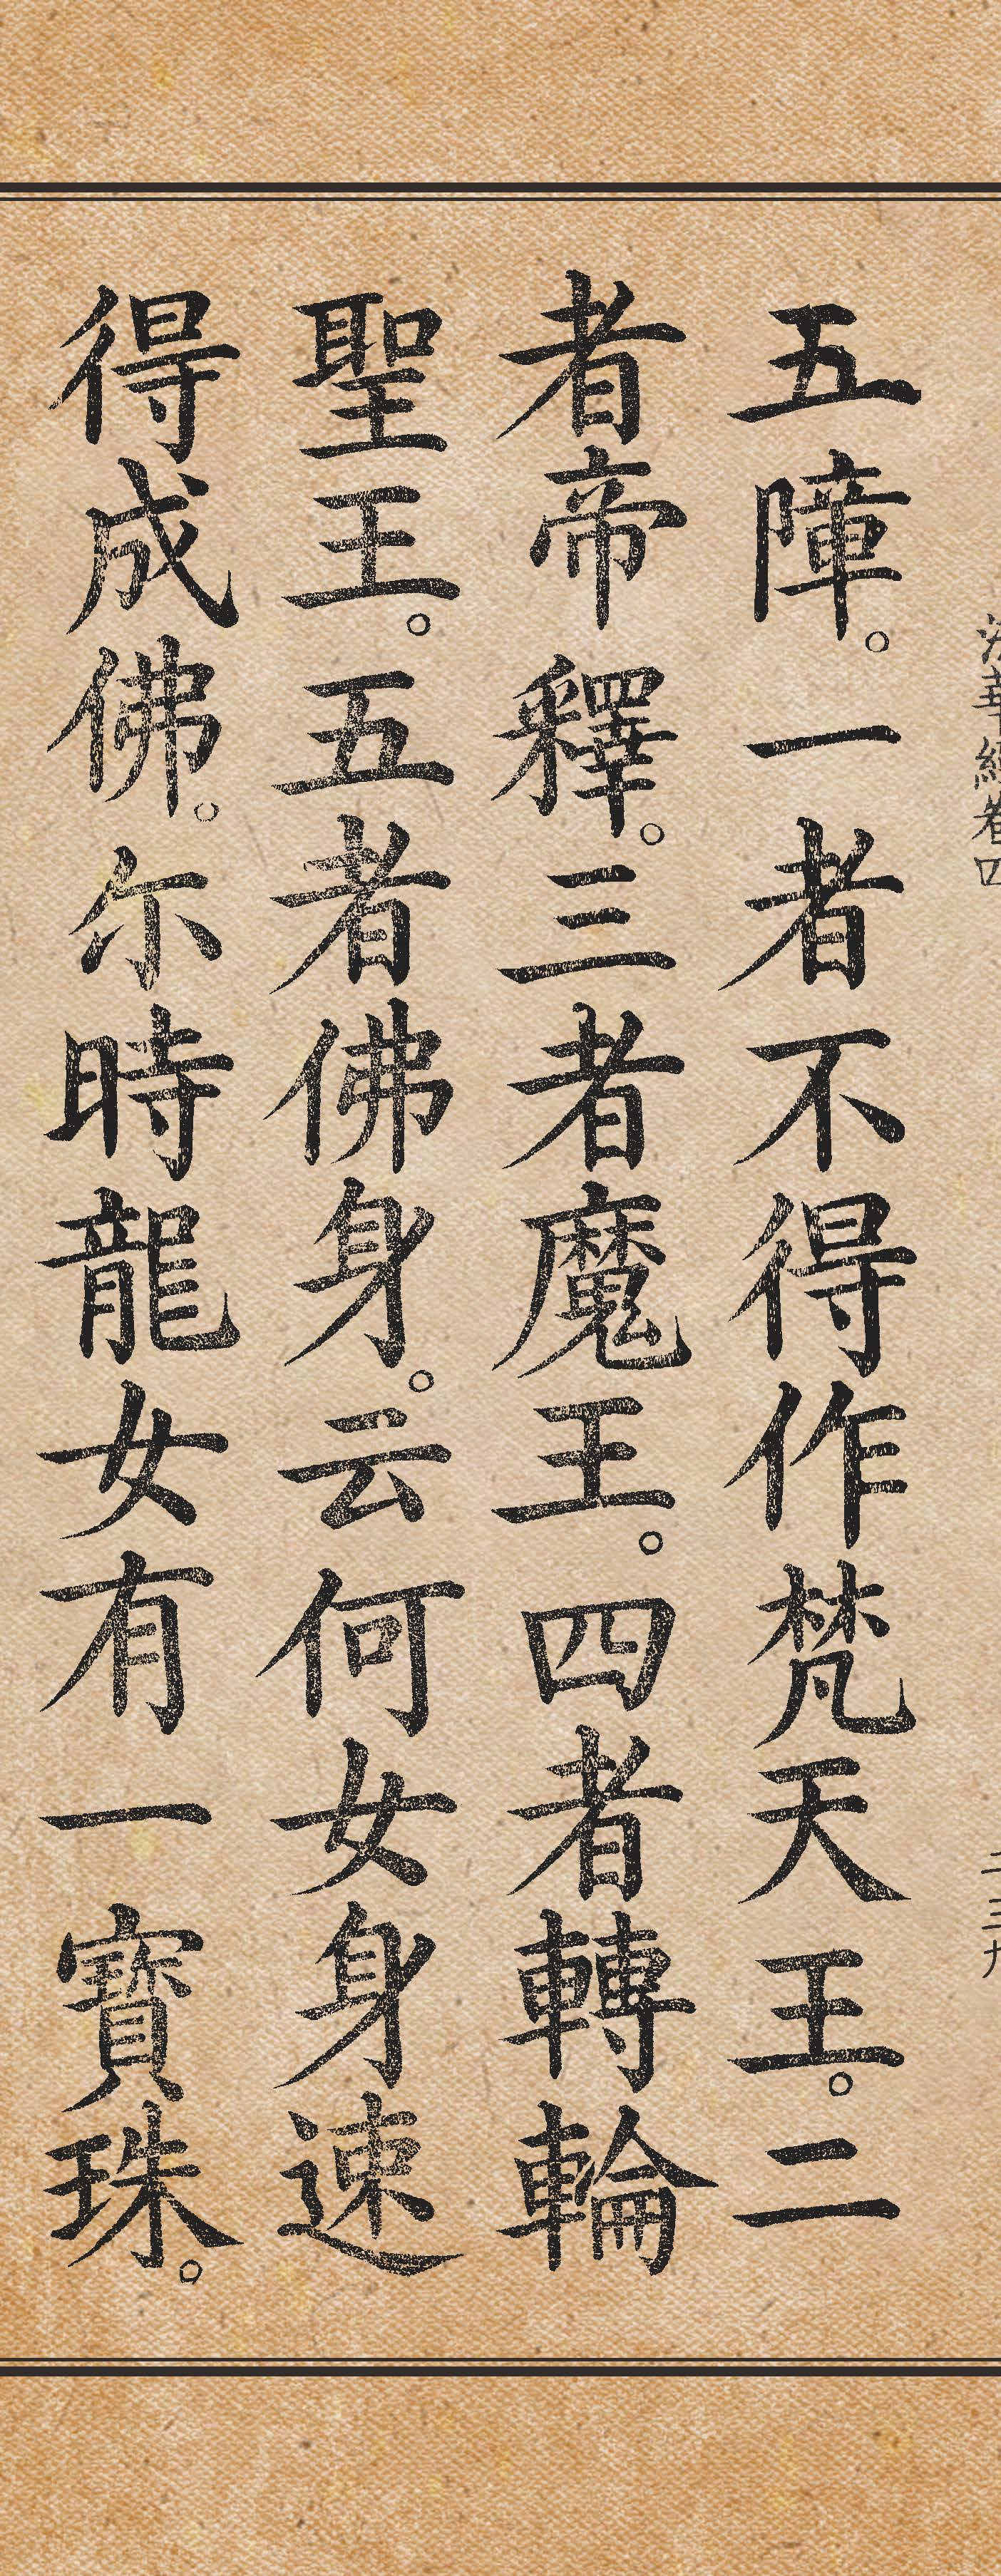 法華經卷四
二三九
五障。一者不得作梵天王。二
者帝釋。三者魔王。四者轉輪
聖王。五者佛身。云何女身速
得成佛。尓時龍女有一寶珠。